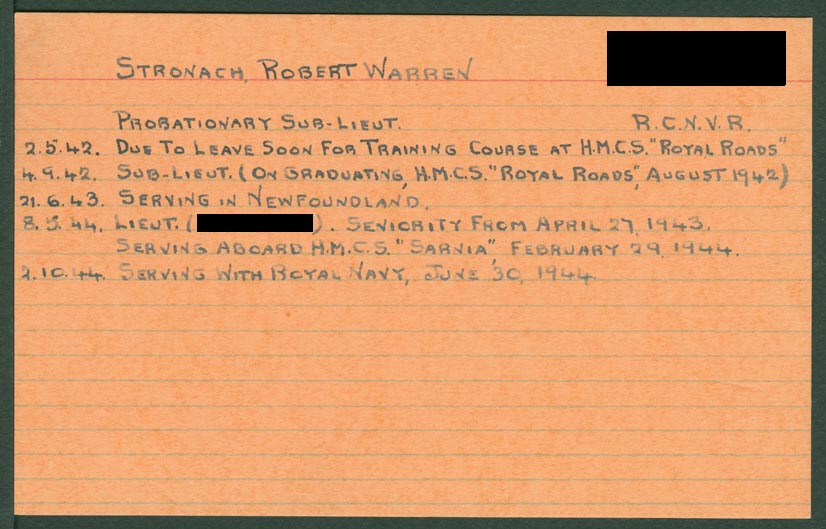 STRONACH, ROBERT WARREN
PROBATIONARY SUB-LIEUT. R.C.N.V.R.
2.5.42. DUE TO LEAVE SOON FOR TRAINING COURSE AT H.M.C.S. "ROYAL ROADS"
4.9.42. SUB-LIEUT. (ON GRADUATING, H.M.C.S. "ROYAL ROADS", AUGUST 1942)
21.6.43. SERVING IN NEWFOUNDLAND.
8.5.44. LIEUT. ( ). SENIORITY FROM APRIL 27, 1943.
SERVING ABOARD H.M.C.S. "SARNIA", FEBRUARY 29, 1944.
2.10.44. SERVING WITH ROYAL NAVY, JUNE 30, 1944.